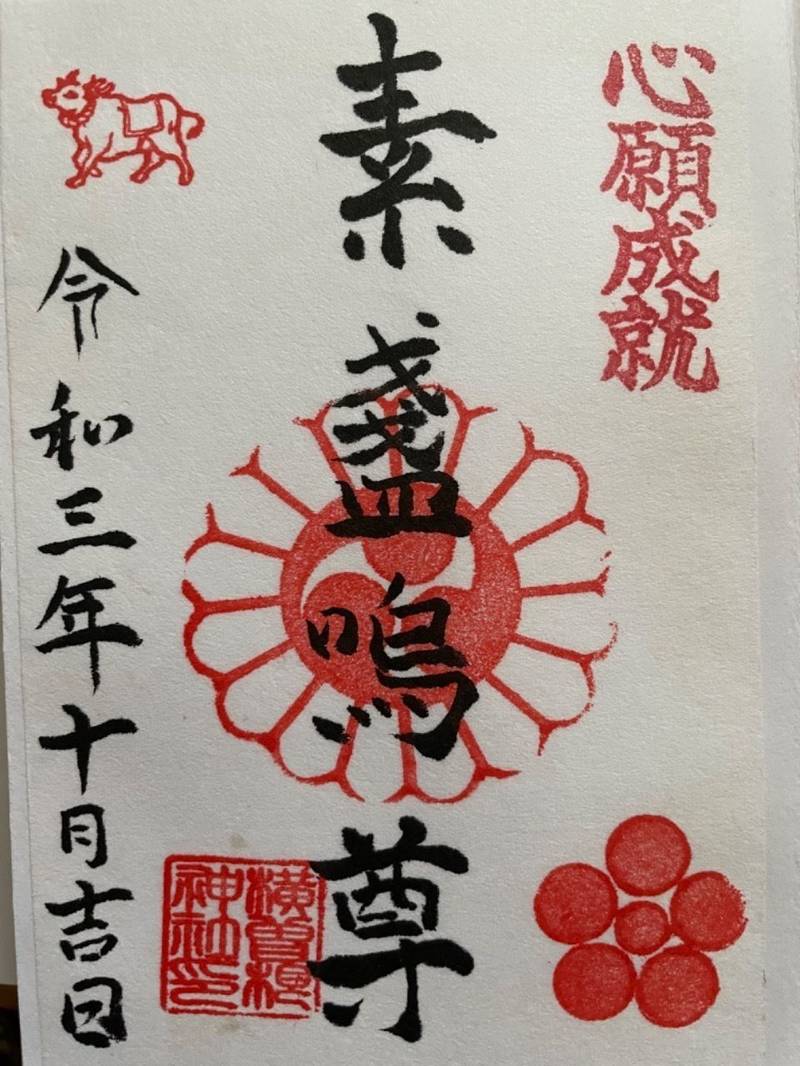 心願成就
素盞嗚尊
横曽根
神社印
令和三年十月吉日